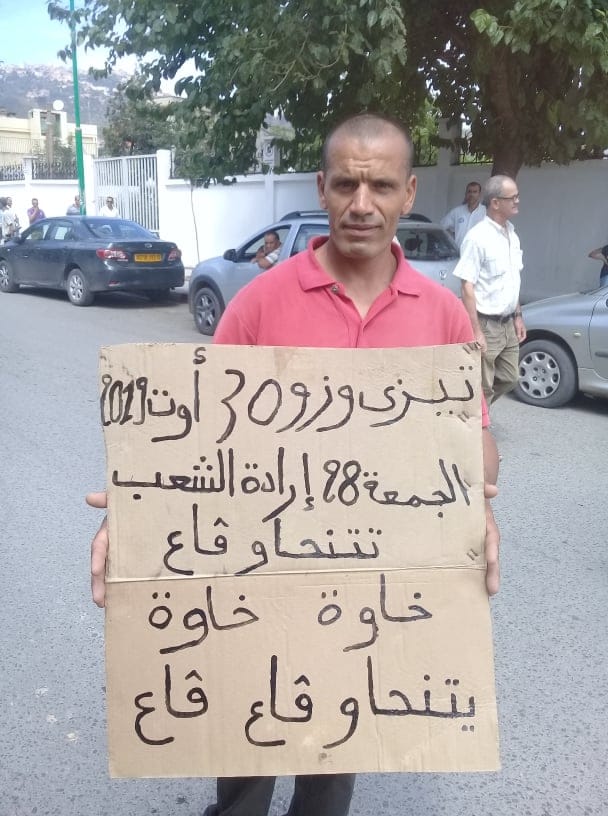 تيزى وزو 30 أوت 2019
الجمعة 28 إرادة الشعب
تتنحاو ڤاع
خاوة خاوة
يتنحاو ڤاع ڤاع